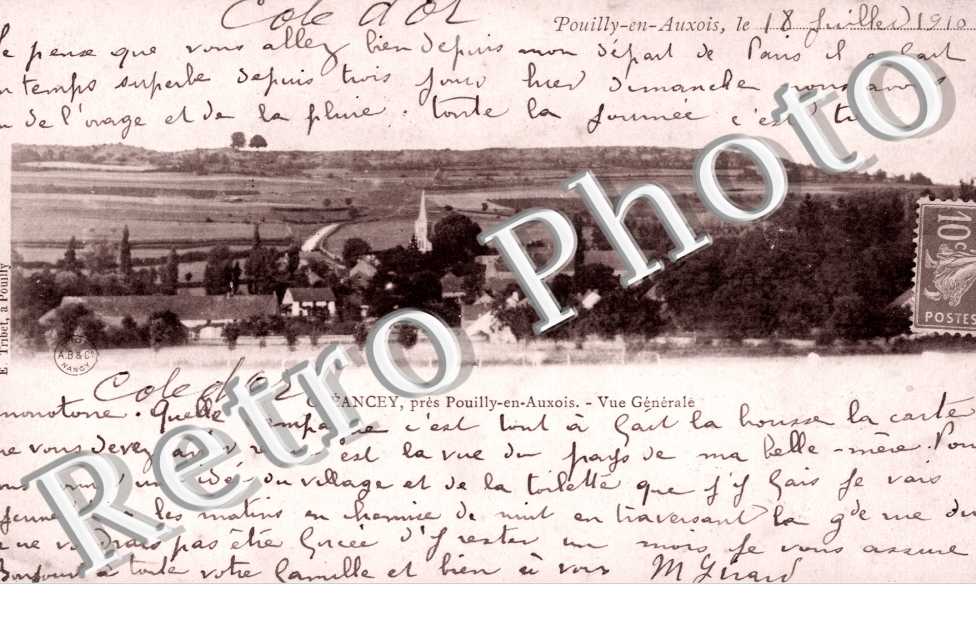 Cote d'Or
Pouilly-en-Auxois, le 18 Juillet 1910
Je pense que vous allez bien depuis mon départ de Paris il a fait
temps superbe depuis trois jours hier dimanche nous avons
de l'orage et de la pluie. toute la journée c'est
10c
POSTES
E. Tribet, à Pouilly
A.B & Co
NANCY
Retro Photo
Cote d'Or
ANCEY, près Pouilly-en-Auxois. - Vue Générale
monotone. Quelle c'est tout à fait la housse la carte
vous devez c'est la vue du pays de ma belle-mère. Pour
idée du village et de la toilette que j'y fais je vais
les matins en chemise de nuit en traversant la gde rue du
ne voudrais pas être forcée d'y rester un mois je vous assure
Bonjour à toute votre famille et bien à vous M Girard